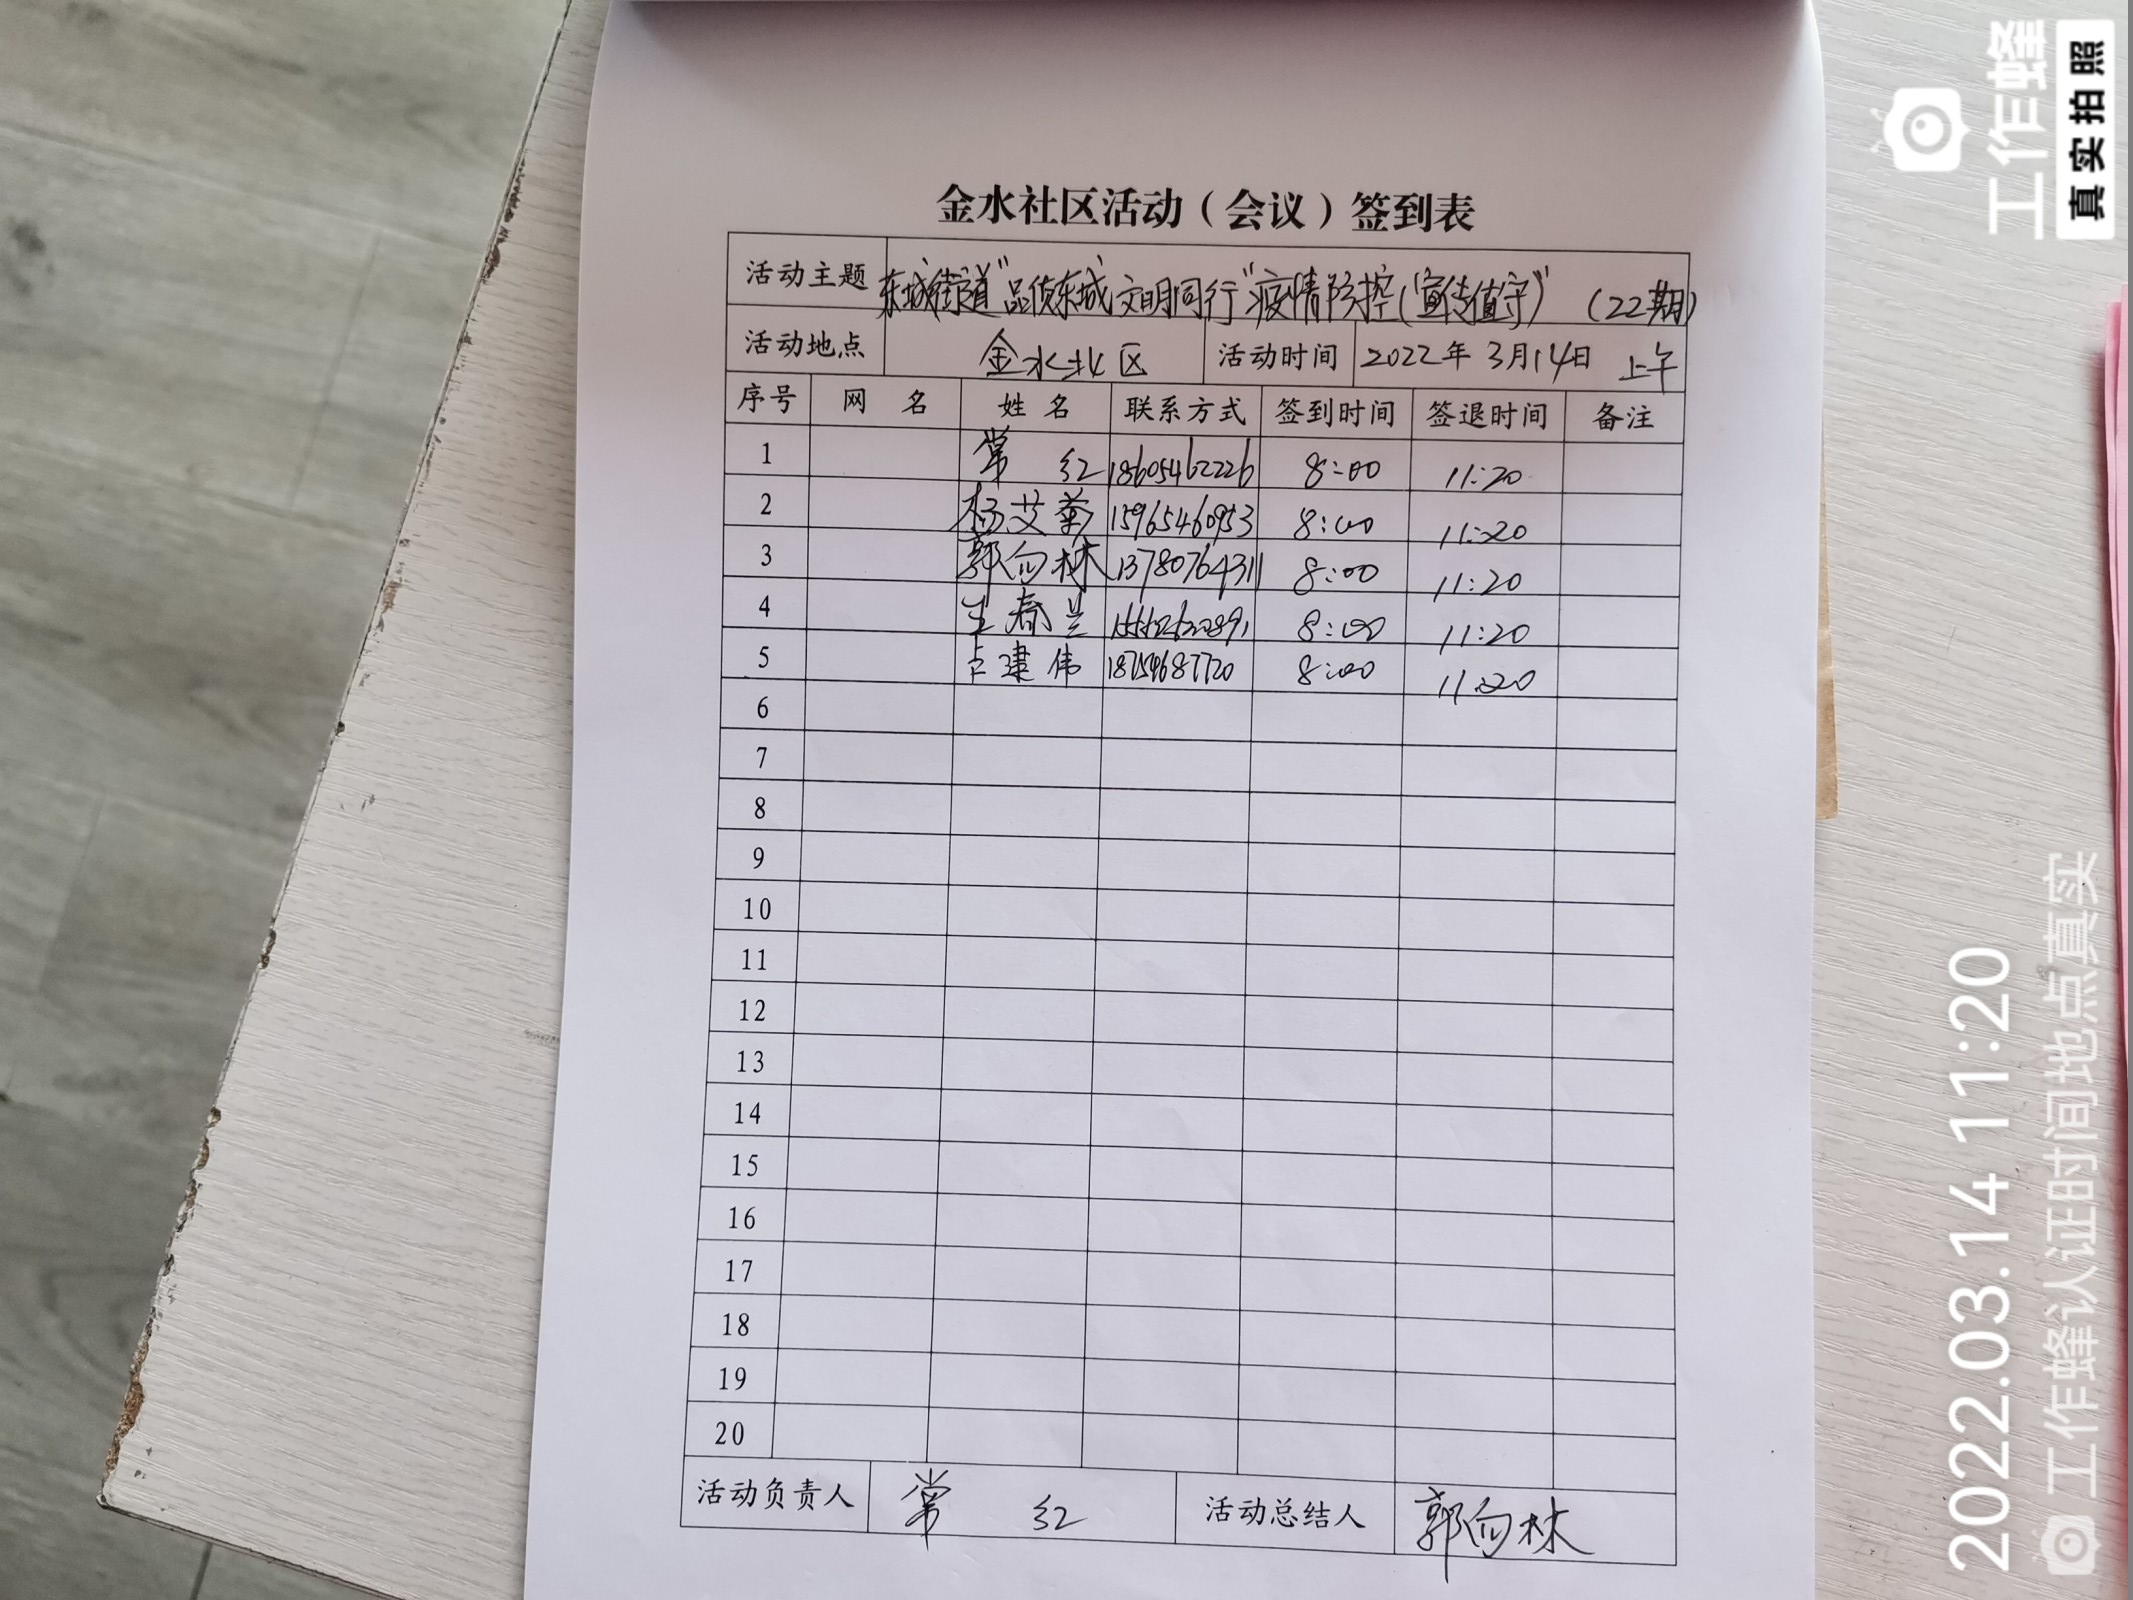 金水社区活动（会议）签到表
活动主题 东城街道"品质东城 文明同行"疫情防控("宣传值守)" (22期)
活动地点 金水北区 活动时间 2022年3月14日 上午
序号 网 名 姓 名 联系方式 签到时间 签退时间 备注
1 常 红 18605462226 8:00 11:20
2 杨艾菊 15965460953 8:00 11:20
3 郭向林 13780764311 8:00 11:20
4 春兰 8:00 11:20
5 建伟 18754687720 8:00 11:20
6
7
8
9
10
11
12
13
14
15
16
17
18
19
20
活动负责人 常 红 活动总结人 郭向林
工作蜂
真实拍照
2022.03.14 11:20
工作蜂认证时间地点真实